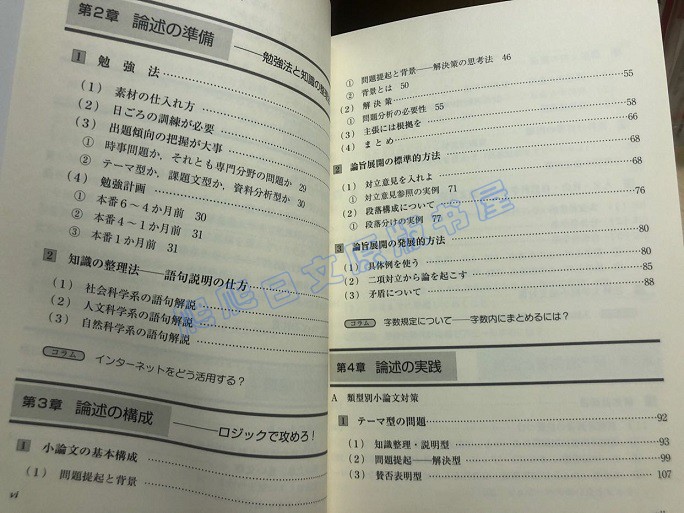 第2章 論述の準備
——勉強法と知識の整理
1 勉強法
(1) 素材の仕入れ方
(2) 日ごろの訓練が必要
(3) 出題傾向の把握が大事
① 時事問題か、それとも専門分野の問題か 29
② テーマ型か、課題文型か、資料分析型か 30
(4) 勉強計画
① 本番6〜4か月前 30
② 本番4〜1か月前 31
③ 本番1か月前 31
2 知識の整理法——語句説明の仕方
(1) 社会科学系の語句解説
(2) 人文科学系の語句解説
(3) 自然科学系の語句解説
コラム インターネットをどう活用する?
第3章 論述の構成
——ロジックで攻めろ!
1 小論文の基本構成
(1) 問題提起と背景
vi
① 問題提起と背景——解決策の思考法 46
② 背景とは 50
(2) 解決策 55
① 問題分析の必要性 55
(3) 主張には根拠を 58
(4) まとめ 66
2 論旨展開の標準的方法 68
(1) 対立意見を入れよ 68
① 対立意見参照の実例 71
(2) 段落構成について 76
① 段落分けの実例 77
3 論旨展開の発展的方法 80
(1) 具体例を使う 80
(2) 二項対立から論を起こす 85
(3) 矛盾について 88
コラム 字数規定について——字数内にまとめるには?
第4章 論述の実践
A 類型別小論文対策
1 テーマ型の問題 92
(1) 知識整理・説明型 93
(2) 問題提起——解決型 99
(3) 賛否表明型 107
日文原版书屋